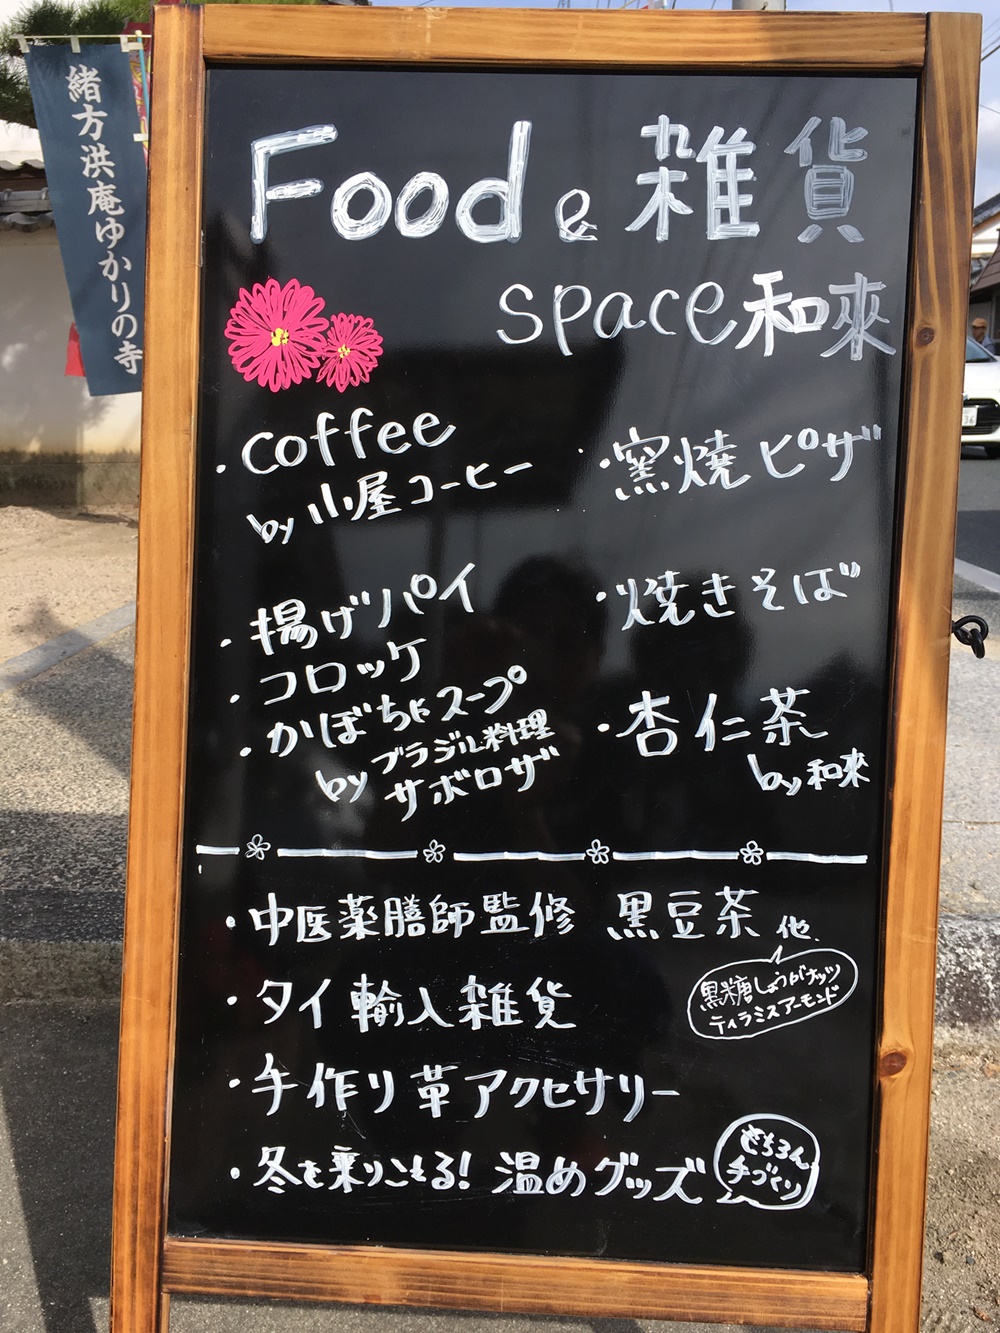 緒方洪庵ゆかりの寺
Food & 雑貨
space 和來
・coffee
by 小屋コーヒー
・揚げパイ
・コロッケ
・かぼちゃスープ
by ブラジル料理
サボロザ
・窯焼ピザ
・焼きそば
・杏仁茶
by 和來
・中医薬膳師監修 黒豆茶 他
黒糖しょうがナッツ
ティラミスアーモンド
・タイ輸入雑貨
・手作り革アクセサリー
・冬を乗りこえる! 温めグッズ
もちろん
手づくり